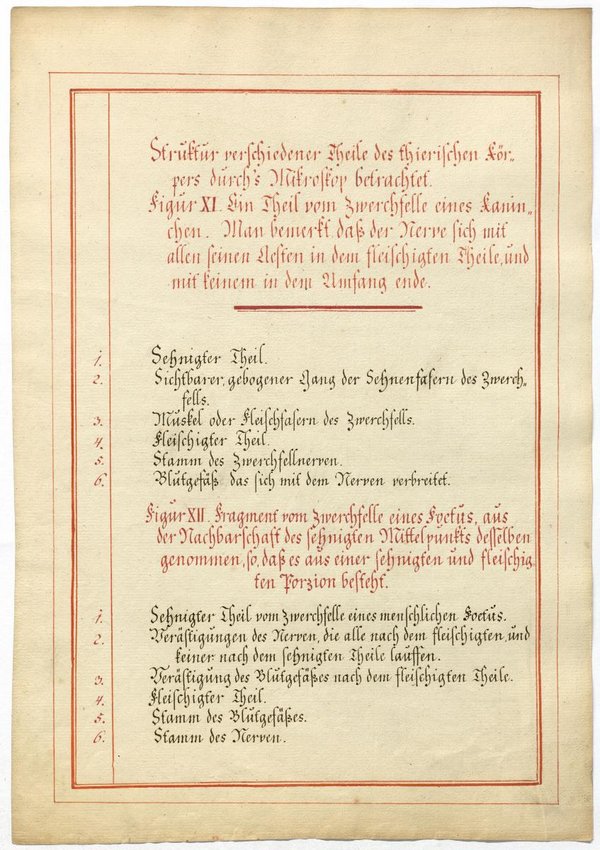 Struktur verschiedener Theile des thierischen Kör-
pers durch's Mikroskop betrachtet.
Figur XI. Ein Theil vom Zwerchfelle eines Kanin-
chen. Man bemerkt, daß der Nerve sich mit
allen seinen Aesten in dem fleischigten Theile, und
mit keinem in dem Umfang ende.
1. Sehnigter Theil.
2. Sichtbarer, gebogener Gang der Sehnenfasern des Zwerch-
fells.
3. Muskel oder Fleischfasern des Zwerchfells.
4. Fleischigter Theil.
5. Stamm des Zwerchfellnerven.
6. Blutgefäß, das sich mit dem Nerven verbreitet.
Figur XII. Fragment vom Zwerchfelle eines Foetus, aus
der Nachbarschaft des sehnigten Mittelpunkts desselben
genommen, so, daß es aus einer sehnigten und fleischig-
ten Porzion besteht.
1. Sehnigter Theil vom Zwerchfelle eines menschlichen Foetus.
2. Verästigungen des Nerven, die alle nach dem fleischigten, und
keiner nach dem sehnigten Theile lauffen.
3. Verästigung des Blutgefäßes nach dem fleischigten Theile.
4. Fleischigter Theil.
5. Stamm des Blutgefäßes.
6. Stamm des Nerven.